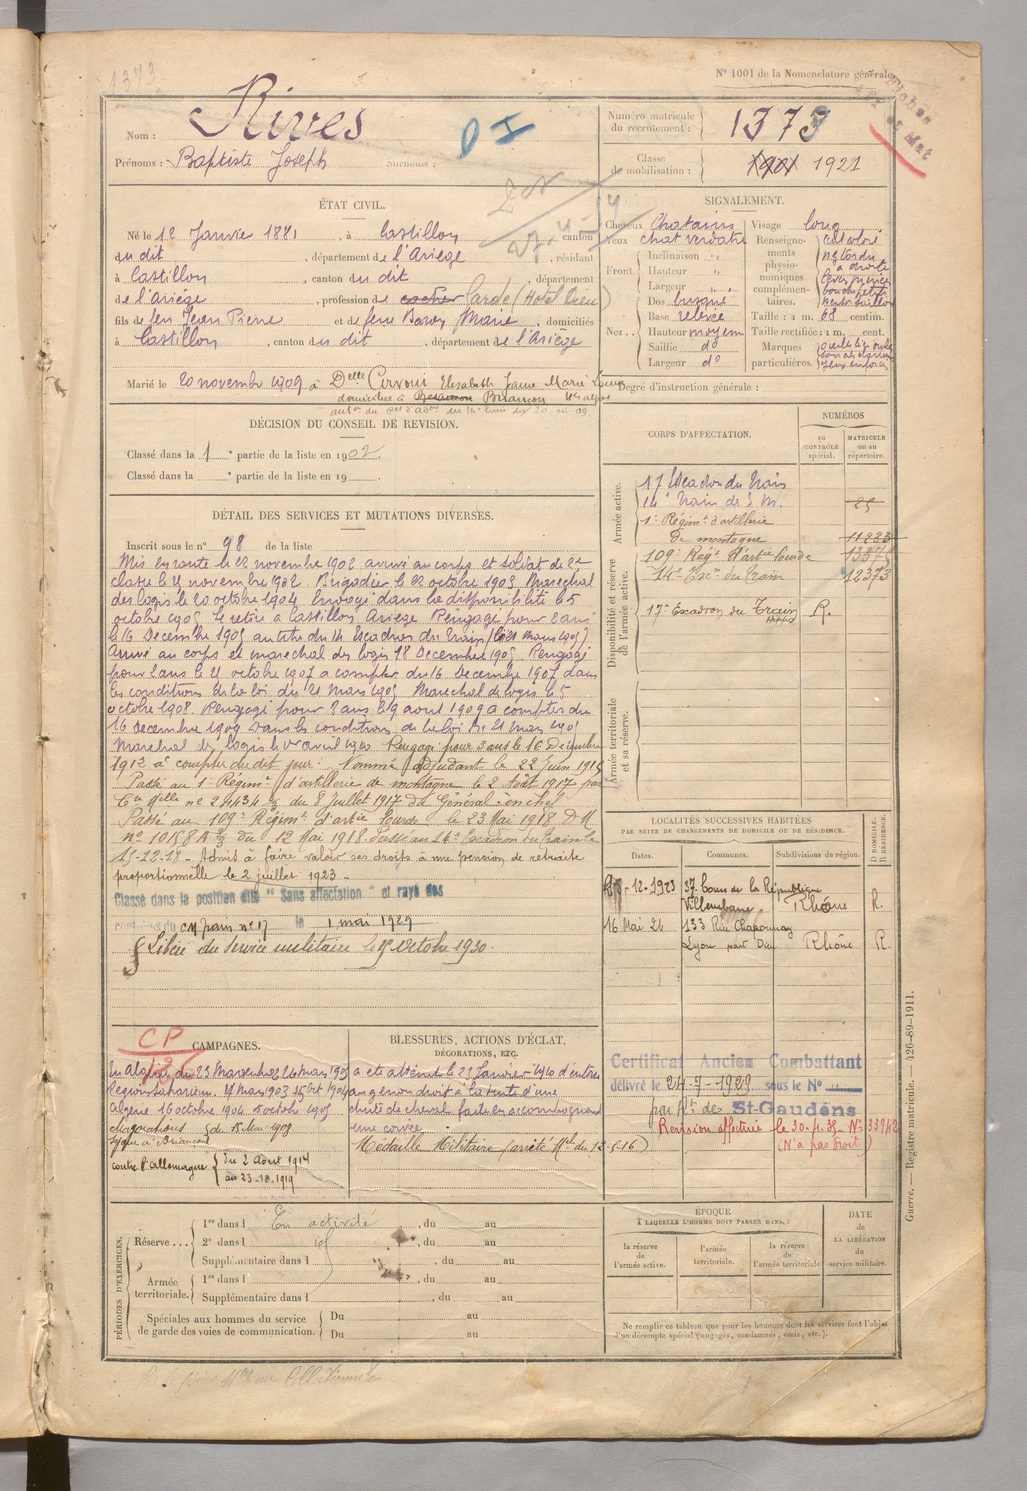 1373
N° 1001 de la Nomenclature générale.
Fiches
et Mat
Nom : Rives
Prénoms : Baptiste Joseph Surnoms :
DI
Numéro matricule du recrutement : 1373
Classe de mobilisation : 1901 1921
ÉTAT CIVIL.
Né le 12 Janvier 1881, à Castillon, canton
du dit, département de l'Ariège, résidant
à Castillon, canton du dit, département
de l'Ariège, profession de cocher Garde (Hotel Dieu)
fils de feu Jean Pierre et de feue Baron Marie, domiciliés
à Castillon, canton du dit, département de l'Ariège
Marié le 20 novembre 1909 à Delle Cirvoni Elisabeth Jeanne Marie Louise
domiciliée à Besançon Briançon Htes alpes
SIGNALEMENT.
Cheveux Chatains
Yeux chat verdatre
Front. Inclinaison
Hauteur
Largeur
Nez... Dos busqué
Base relevée
Hauteur moyen
Saillie d°
Largeur d°
Visage long
Renseignements physionomiques complémentaires.
Taille : 1 m. 68 centim.
Taille rectifiée : 1 m. cent.
Marques particulières.
Degré d'instruction générale :
DÉCISION DU CONSEIL DE REVISION.
Classé dans la 1e partie de la liste en 1902.
Classé dans la e partie de la liste en 19
DÉTAIL DES SERVICES ET MUTATIONS DIVERSES.
Inscrit sous le n° 98 de la liste
Mis en route le 22 novembre 1902 arrivé au corps et soldat de 2e
classe le novembre 1902. Brigadier le 22 octobre 1903. Maréchal
des logis le 20 octobre 1904. Envoyé dans la disponibilité le 5
octobre 1905. Se retire à Castillon, Ariège. Rengagé pour 2 ans
le 16 Décembre 1905 au titre du 14e Escadron du train (loi 21 mars 1905)
Arrivé au corps et maréchal des logis 18 Décembre 1905. Rengagé
pour 2 ans le 21 octobre 1907 à compter du 16 Décembre 1907 dans
les conditions de la loi du 21 mars 1905 Maréchal des logis le 5
octobre 1908. Rengagé pour 2 ans le 9 aout 1909 à compter du
16 décembre 1909 dans les conditions de la loi du 21 mars 1905
Maréchal des logis le 1er avril 1910 Rengagé pour 3 ans le 16 Décembre
1912 à compter du dit jour. Nommé Adjudant le 22 juin 1915
Passé au 1er Régimt d'artillerie de montagne le 2 Août 1917 par
Con Melle n° 24434 du 8 Juillet 1917 du Général en chef.
Passé au 109e Régimt d'artie lourde le 23 Mai 1918 D.M
n° 10158 A du 12 Mai 1918. Passé au 14e Escadron du Train le
15-12-18 - Admis à faire valoir ses droits à une pension de retraite
proportionnelle le 2 juillet 1923 -
Classé dans la position dite " Sans affectation " et rayé des
contrôles du CM paris n° 17 le 1 mai 1929
Libéré du service militaire le octobre 1930.
CORPS D'AFFECTATION.
NUMÉROS
au CONTRÔLE spécial.
MATRICULE ou au répertoire.
Armée active.
17 Escadron du train
14e train des E. M. 25
1er Régimt d'artillerie
de montagne 11283
Disponibilité et réserve de l'armée active.
109e Régt d'artie lourde
14e Escn du Train 12373
17e Escadron du Train R.
Armée territoriale et sa réserve.
LOCALITÉS SUCCESSIVES HABITÉES
PAR SUITE DE CHANGEMENTS DE DOMICILE OU DE RÉSIDENCE.
Dates. Communes. Subdivisions de région. D. DOMICILE. R. RÉSIDENCE.
-12-1923 57 Cours de la République
Villeurbane Rhône R.
16 Mai 24 133 Rue Chaponnay
Lyon part Dieu Rhône R.
Certificat Ancien Combattant
délivré le 24-7-1929 sous le N°
par de St-Gaudens
Revision effectuée le 30-4-35. N° 33942
(N'a pas droit)
CP
CAMPAGNES.
En Algérie du 23 Mars 24 mars 1903
Region saharienne. 24 mars 1903 15 Oct 1904
Algérie 16 octobre 1904 5 octobre 1905
contre l'Allemagne du 2 Aout 1914
au 23.10.1919
BLESSURES, ACTIONS D'ÉCLAT,
DÉCORATIONS, ETC.
a été atteint le 23 Janvier 1910 d'entorse
au genou droit à la suite d'une
chute de cheval faite en accompagnant
une corvée
Médaille Militaire (arrêté Mel du 12-5-16)
PÉRIODES D'EXERCICES.
Réserve... 1re dans l En activité, du au
2e dans l, du au
Supplémentaire dans l, du au
Armée territoriale. 1re dans l, du au
Supplémentaire dans l, du au
Spéciales aux hommes du service de garde des voies de communication. Du au
Du au
ÉPOQUE
À LAQUELLE L'HOMME DOIT PASSER DANS :
la réserve de l'armée active.
l'armée territoriale.
la réserve de l'armée territoriale
DATE de LA LIBÉRATION du service militaire.
Ne remplir ce tableau que pour les hommes dont les services font l'objet
d'un décompte spécial (engagés, condamnés, omis, etc.).
Guerre. — Registre matricule. — 426-89-1911.